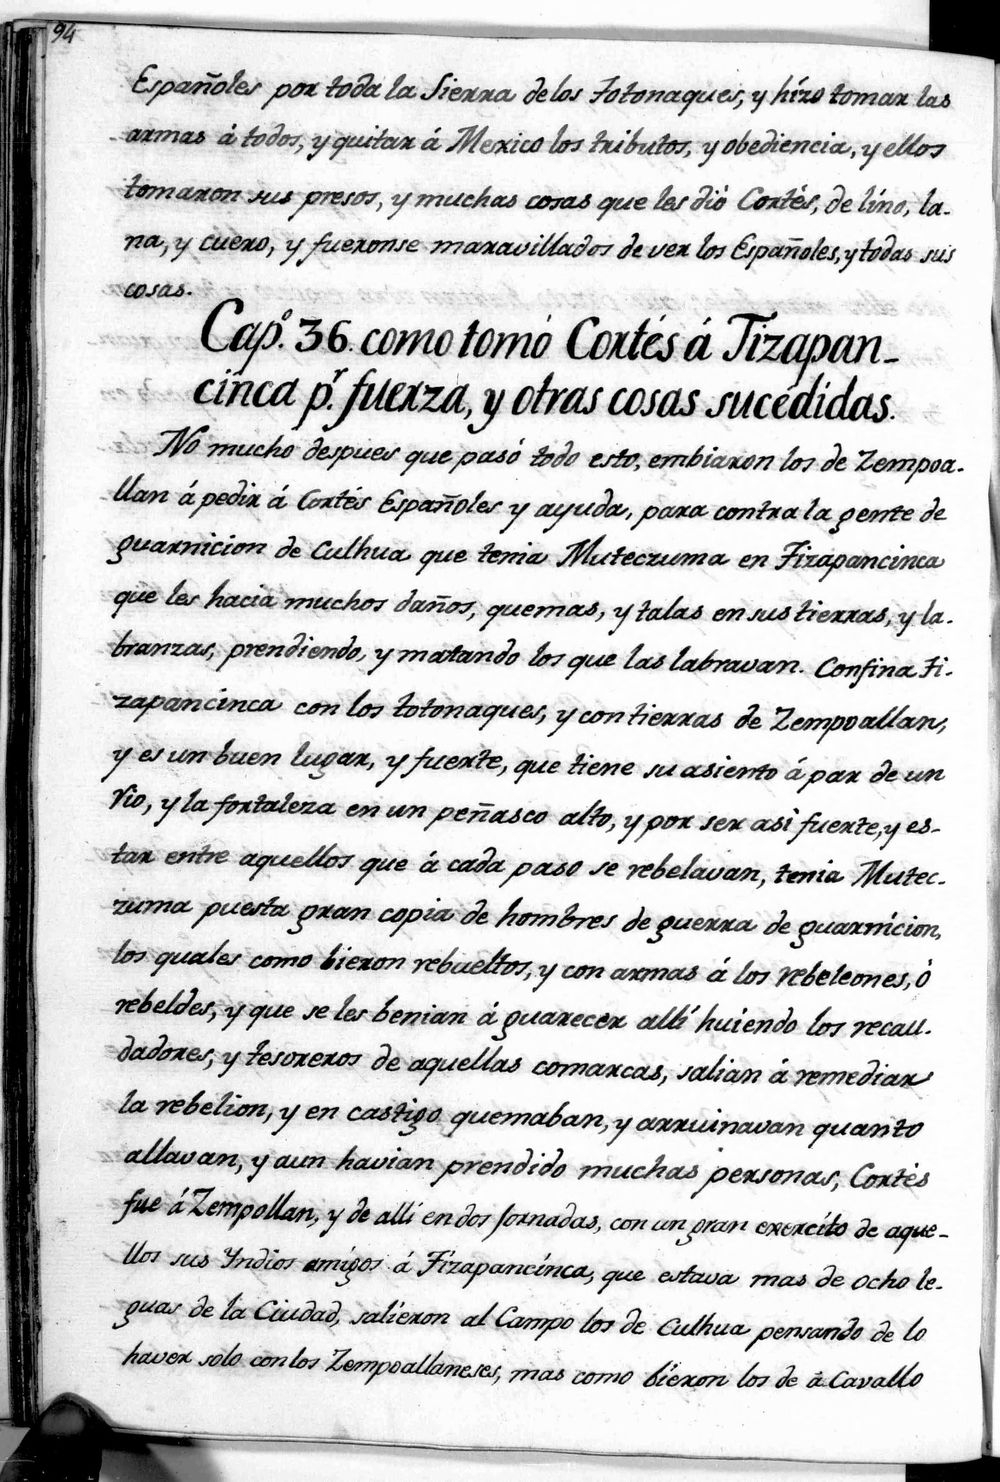 94
Españoles por toda la Sierra de los Totonaques, y hizo tomar las
armas á todos, y quitar á Mexico los tributos, y obediencia, y ellos
tomaron sus presos, y muchas cosas que les dió Cortés, de lino, la-
na, y cuero, y fueronse maravillados de ver los Españoles, y todas sus
cosas.
Capº. 36. como tomó Cortés á Tizapan-
cinca pr. fuerza, y otras cosas sucedidas.
No mucho despues que pasó todo esto, embiaron los de Zempoa-
llan á pedir á Cortés Españoles y ayuda, para contra la gente de
guarnicion de Culhua que tenia Muteczuma en Tizapancinca
que les hacia muchos daños, quemas, y talas en sus tierras, y la-
branzas, prendiendo, y matando los que las labravan. Confina Ti-
zapancinca con los totonaques, y con tierras de Zempoallan,
y es un buen lugar, y fuerte, que tiene su asiento á par de un
rio, y la fortaleza en un peñasco alto, y por ser asi fuerte, y es-
tar entre aquellos que á cada paso se rebelavan, tenia Mutec-
zuma puesta gran copia de hombres de guerra de guarnicion,
los quales como bieron rebueltos, y con armas á los rebeleones, ó
rebeldes, y que se les benian á guarecer allí huiendo los recau-
dadores, y tesoreros de aquellas comarcas, salian á remediar
la rebelion, y en castigo quemaban, y arruinavan quanto
allavan, y aun havian prendido muchas personas, Cortés
fue á Zempollan, y de alli en dos Jornadas, con un gran exercito de aque-
llos sus Yndios amigos á Tizapancinca, que estava mas de ocho le-
guas de la Ciudad, salieron al Campo los de Culhua pensando de lo
haver solo con los Zempoallaneses, mas como bieron los de á Cavallo